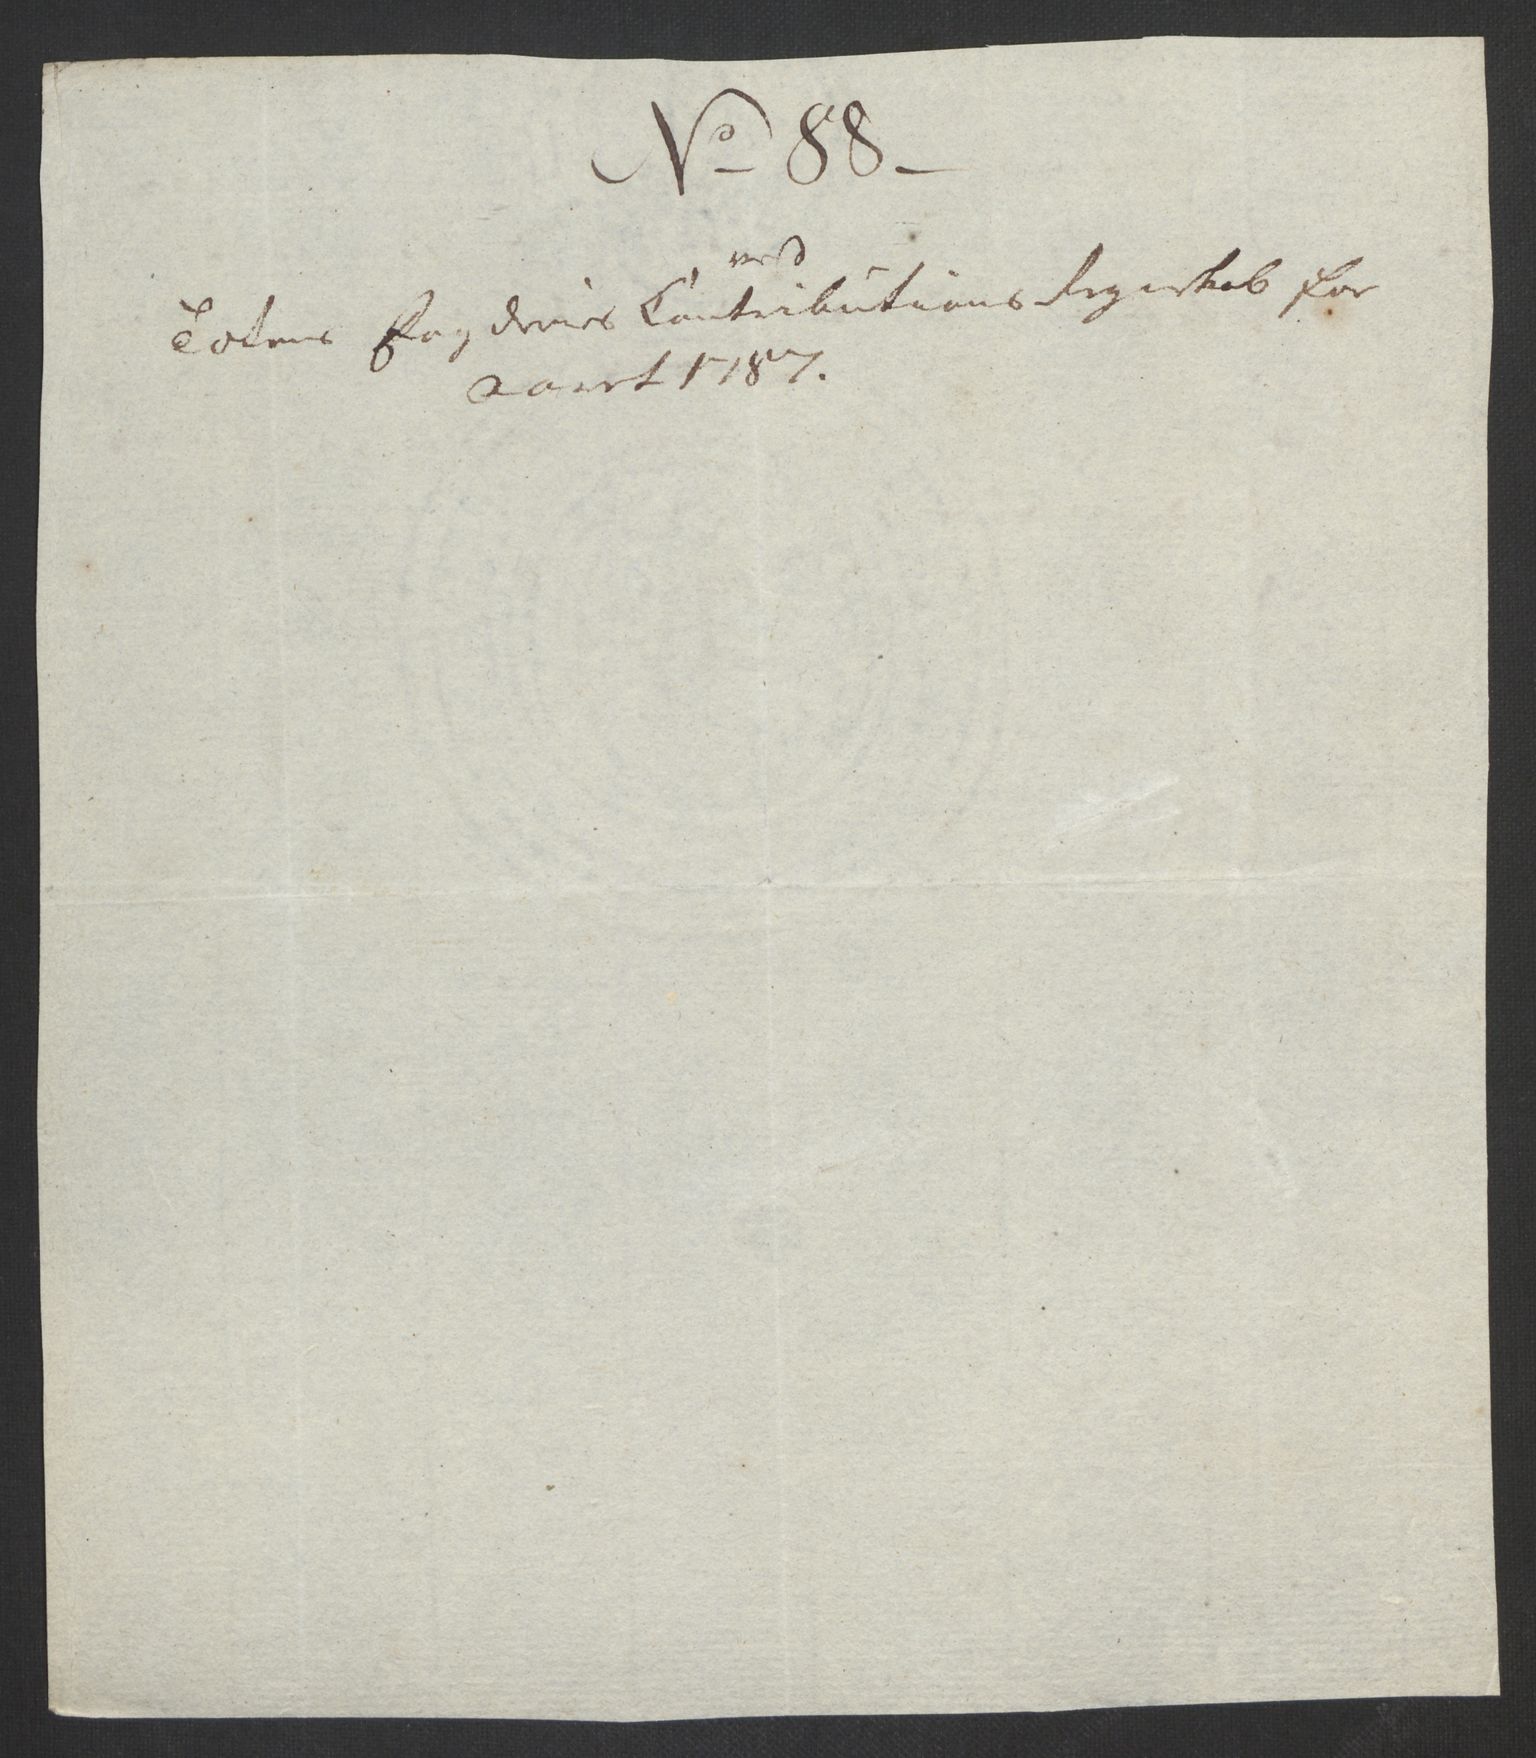 No 88
ved
Totens Fogderies Contributions Regnskab for
aaret 1787.